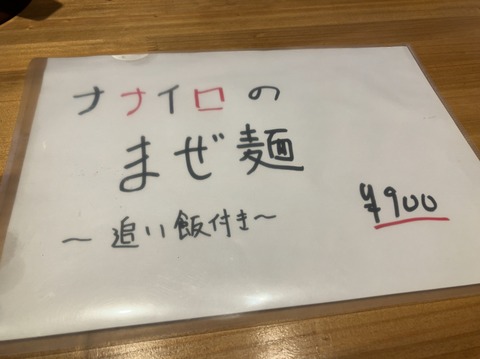 ナナイロの
まぜ麺
～追い飯付き～
¥900